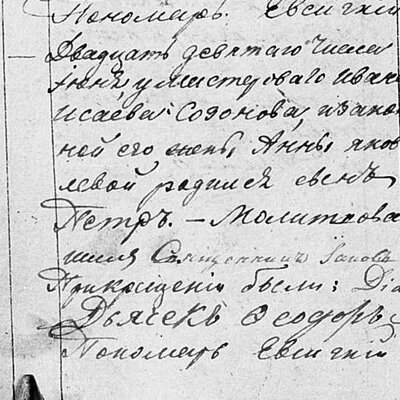 Пономарь Евсигній
Двадцать девятаго числа
Іюня, у мастероваго Иван
Исаева Созонова, изако
ной его жены Анны яков
левой родился сынъ
Петръ. — Молитвова
Священникъ Іаковъ
При крещеніи были: Діа
Дьячекъ Ѳеодоръ
Пономарь Евсигній